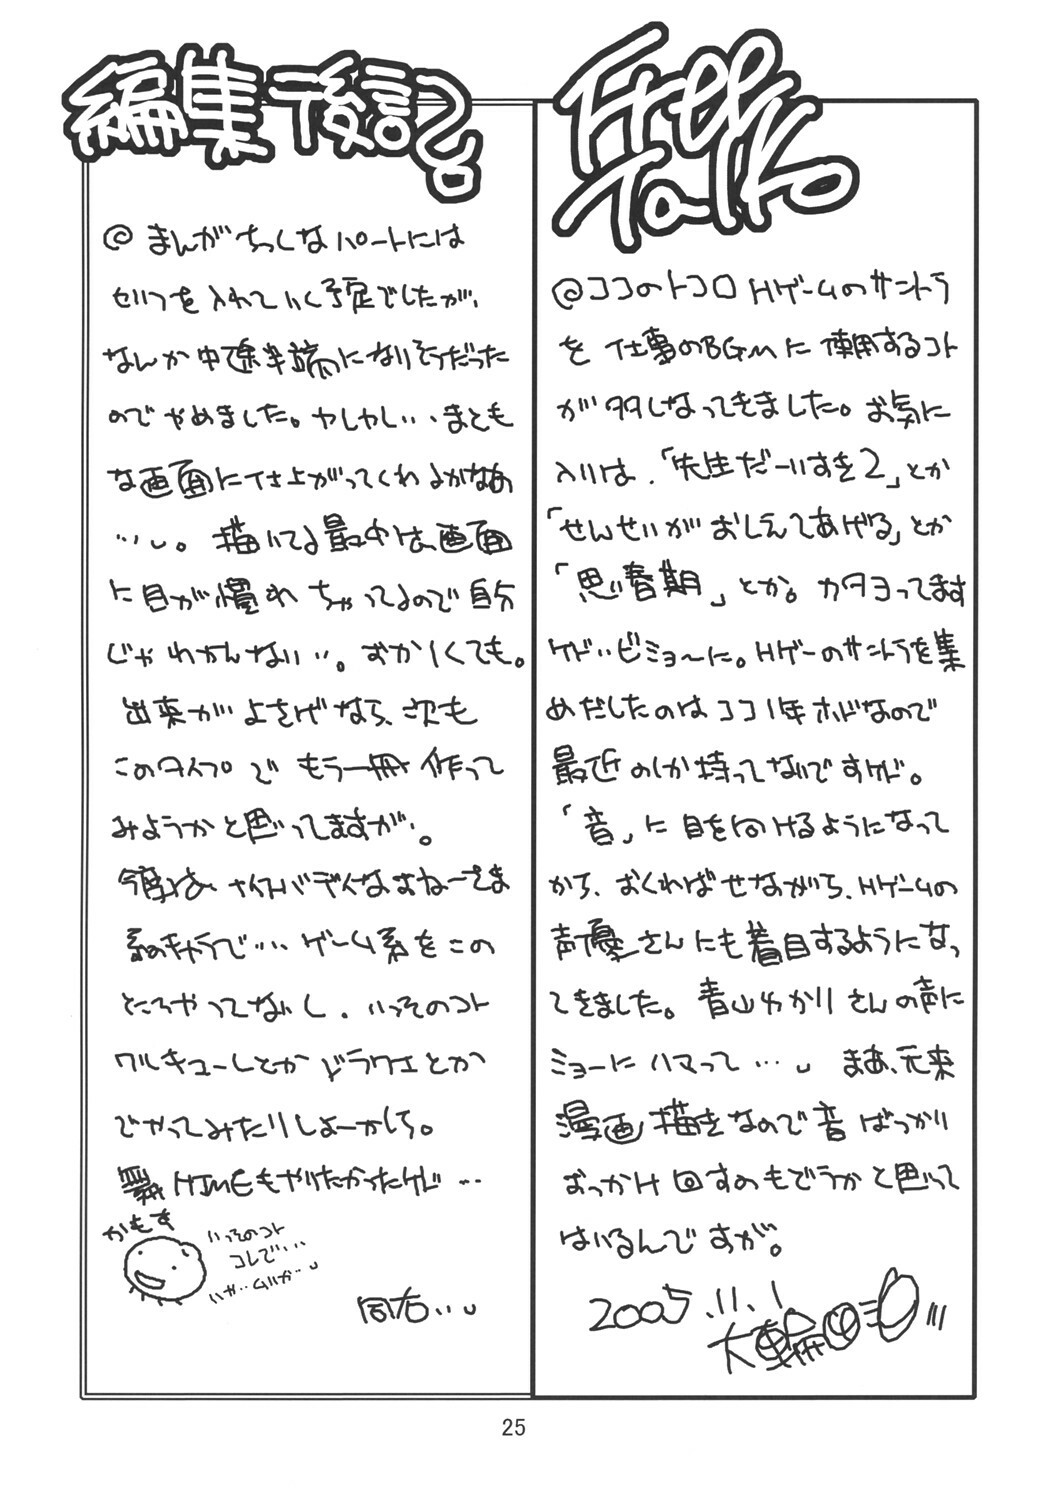 Free
Talk
@ココのトコロHゲームのサントラ
を仕事のBGMに使用するコト
が多しなってきました。お気に
入りは、「先生だーいすき2」とか
「せんせいがおしえてあげる」とか
「思春期」とか。カタヨってます
ケド…ビミョ〜に。Hゲーのサントラを集
めだしたのはココ1年ホドなので
最近のしか持ってないですケド。
「音」に目を向けるようになって
から、おくればせながら、Hゲームの
声優さんにも着目するようになっ
てきました。青山ゆかりさんの声に
ミョーにハマって…。まあ、元来
漫画描きなので音ばっかり
おっかけ回すのもどうかと思って
はいるんですが。
2005.11.1
大輪
編集後記
@まんがちっくなパートには
セリフを入れていく予定でしたが、
なんか中途半端になりそうだった
のでやめました。ケレケレ…まとも
な画面に仕上がってくれるかなぁ
…。描いてる最中は、画面
に目が慣れちゃってるので自分
じゃわかんない…。おかしくても。
出来がよさげなら、次も
このタイプでもう一冊作って
みようかと思ってますが。
今度は、ナイスバディなおねーさま
系のキャラで…ゲーム系をこの
ところやってないし、いっそのコト
ワルキューレとかドラクエとか
でやってみたりしよーかしら。
舞HIMEもやりたかったけど…
かもす
いっそのコト
コレで…
いや…ムリか…
同右…
25